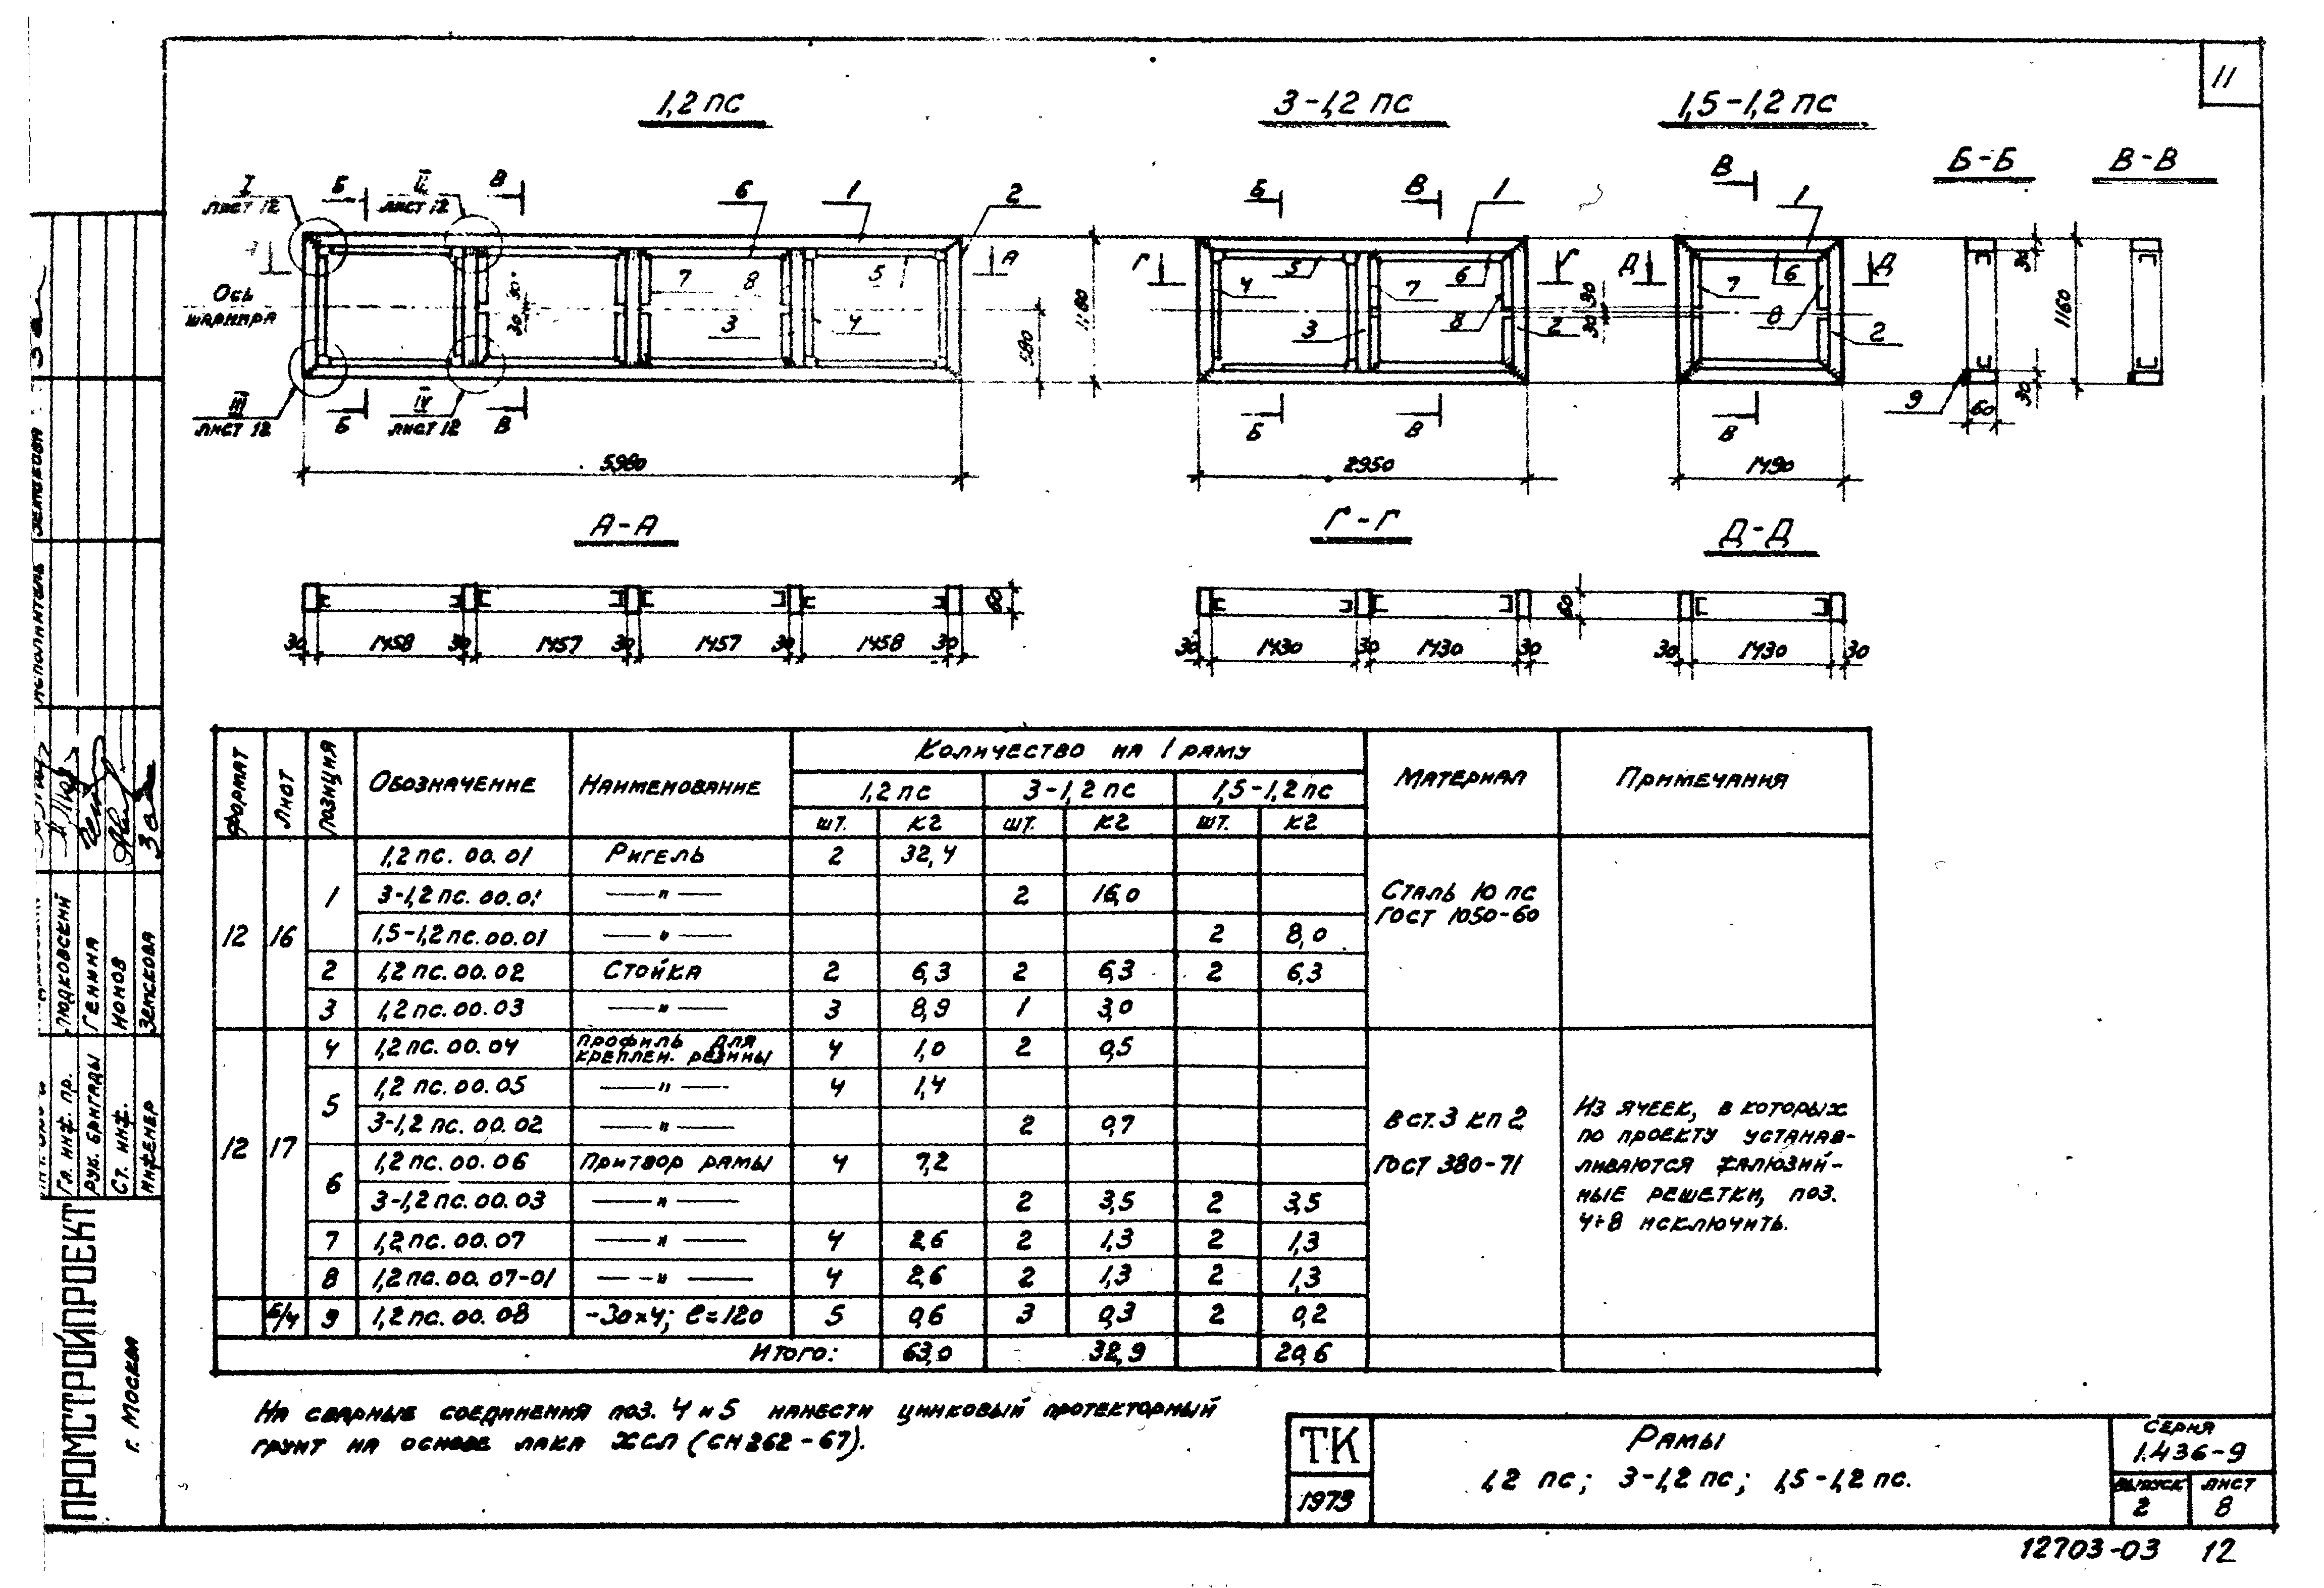 11
1,2 пс
3-1,2 пс
1,5-1,2 пс
Б-Б
В-В
I
лист 12
Б
II
лист 12
В
6
1
2
А
7
8
5
3
4
30
30
Ось
шарнира
580
1160
III
лист 12
Б
IV
лист 12
В
5980
Б
В
1
Г
Г
4
5
3
7
6
8
2
30
30
Б
В
2950
В
1
Д
Д
7
6
8
2
В
1490
30
30
9
60
1160
А-А
Г-Г
Д-Д
30 1458 30 1457 30 1457 30 1458 30
60
30 1430 30 1430 30
60
30 1430 30
Формат Лист Позиция Обозначение Наименование Количество на 1 раму Материал Примечания
1,2 пс 3-1,2 пс 1,5-1,2 пс
шт. кг шт. кг шт. кг
12 16 1 1,2 пс. 00. 01 Ригель 2 32,4
3-1,2 пс. 00. 01 — " — 2 16,0
1,5-1,2 пс. 00. 01 — " — 2 8,0
2 1,2 пс. 00. 02 Стойка 2 6,3 2 6,3 2 6,3
3 1,2 пс. 00. 03 — " — 3 8,9 1 3,0
Сталь 10 пс
ГОСТ 1050-60
12 17 4 1,2 пс. 00. 04 Профиль для креплен. резины 4 1,0 2 0,5
5 1,2 пс. 00. 05 — " — 4 1,4
3-1,2 пс. 00. 02 — " — 2 0,7
6 1,2 пс. 00. 06 Притвор рамы 4 7,2
3-1,2 пс. 00. 03 — " — 2 3,5 2 3,5
7 1,2 пс. 00. 07 — " — 4 2,6 2 1,3 2 1,3
8 1,2 пс. 00. 07-01 — " — 4 2,6 2 1,3 2 1,3
б/ч 9 1,2 пс. 00. 08 -30×4; ℓ=120 5 0,6 3 0,3 2 0,2
Итого: 63,0 32,9 20,6
В ст. 3 кп 2
ГОСТ 380-71
Из ячеек, в которых
по проекту устанав-
ливаются жалюзий-
ные решетки, поз.
4÷8 исключить.
На сварные соединения поз. 4 и 5 нанести цинковый протекторный
грунт на основе лака ХСЛ (СН 262-67).
ТК
1973
Рамы
1,2 пс; 3-1,2 пс; 1,5-1,2 пс.
Серия
1.436-9
выпуск
2
лист
8
12703-03 12
ПРОМСТРОЙПРОЕКТ
г. Москва
Гл. инж. пр. Людковский
Рук. бригады Генина
Ст. инж. Нонов
Инженер Земскова
Исполнитель Земскова